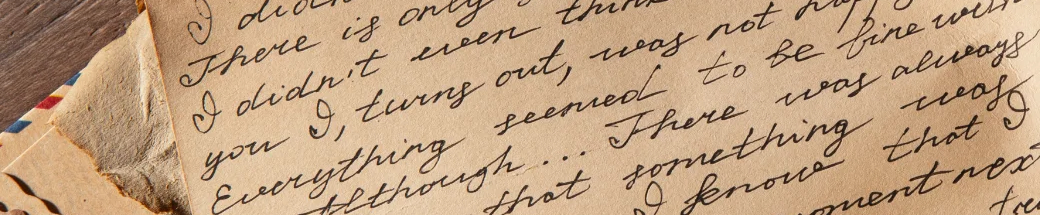 I didn
There is only
I didn't even think
you I, turns out, was not happ
Everything seemed to be fine with
Although... There was always
that something was
I know that I
moment next